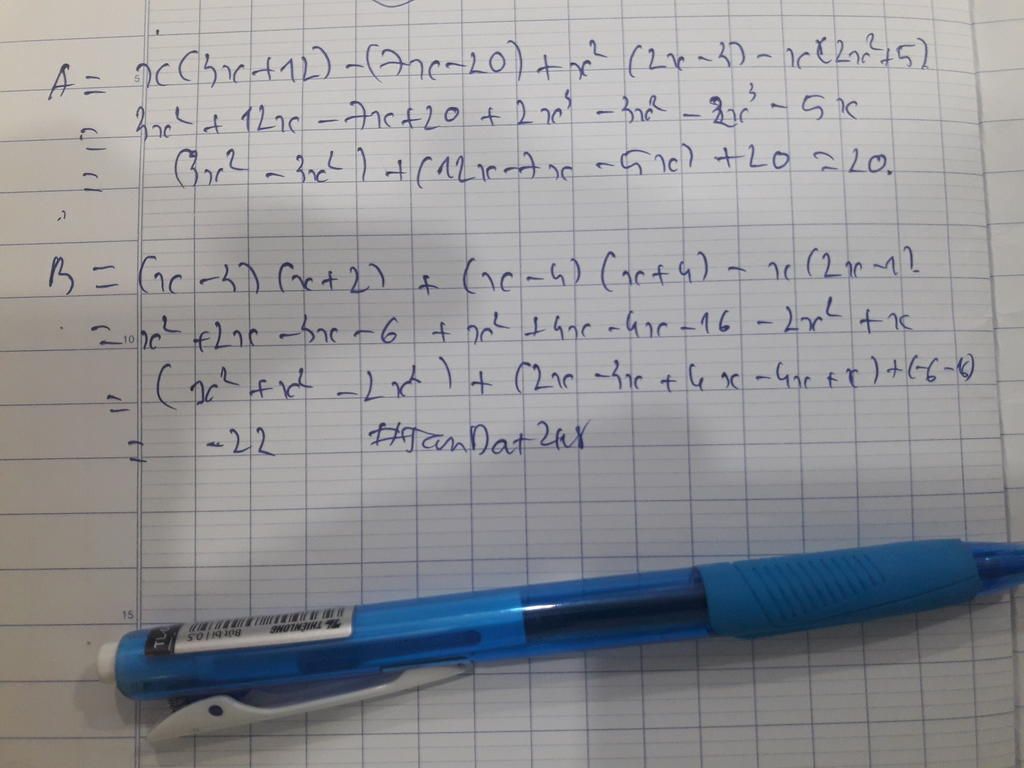 A = x(3x+12) - (7x-20) + x² (2x-3) - x(2x²+5)
= 3x² + 12x - 7x+20 + 2x³ - 3x² - 2x³ - 5x
= (3x² - 3x²) + (12x-7x - 5x) + 20 = 20.
B = (x-3) (x+2) + (x-4) (x+4) - x(2x-1)
= x² +2x -3x -6 + x² +4x -4x -16 - 2x² + x
= (x² +x² - 2x²) + (2x -3x + 4x -4x + x) + (-6 -16)
= -22
THIENLONG
Bút bi 0.5
TL
5
10
15